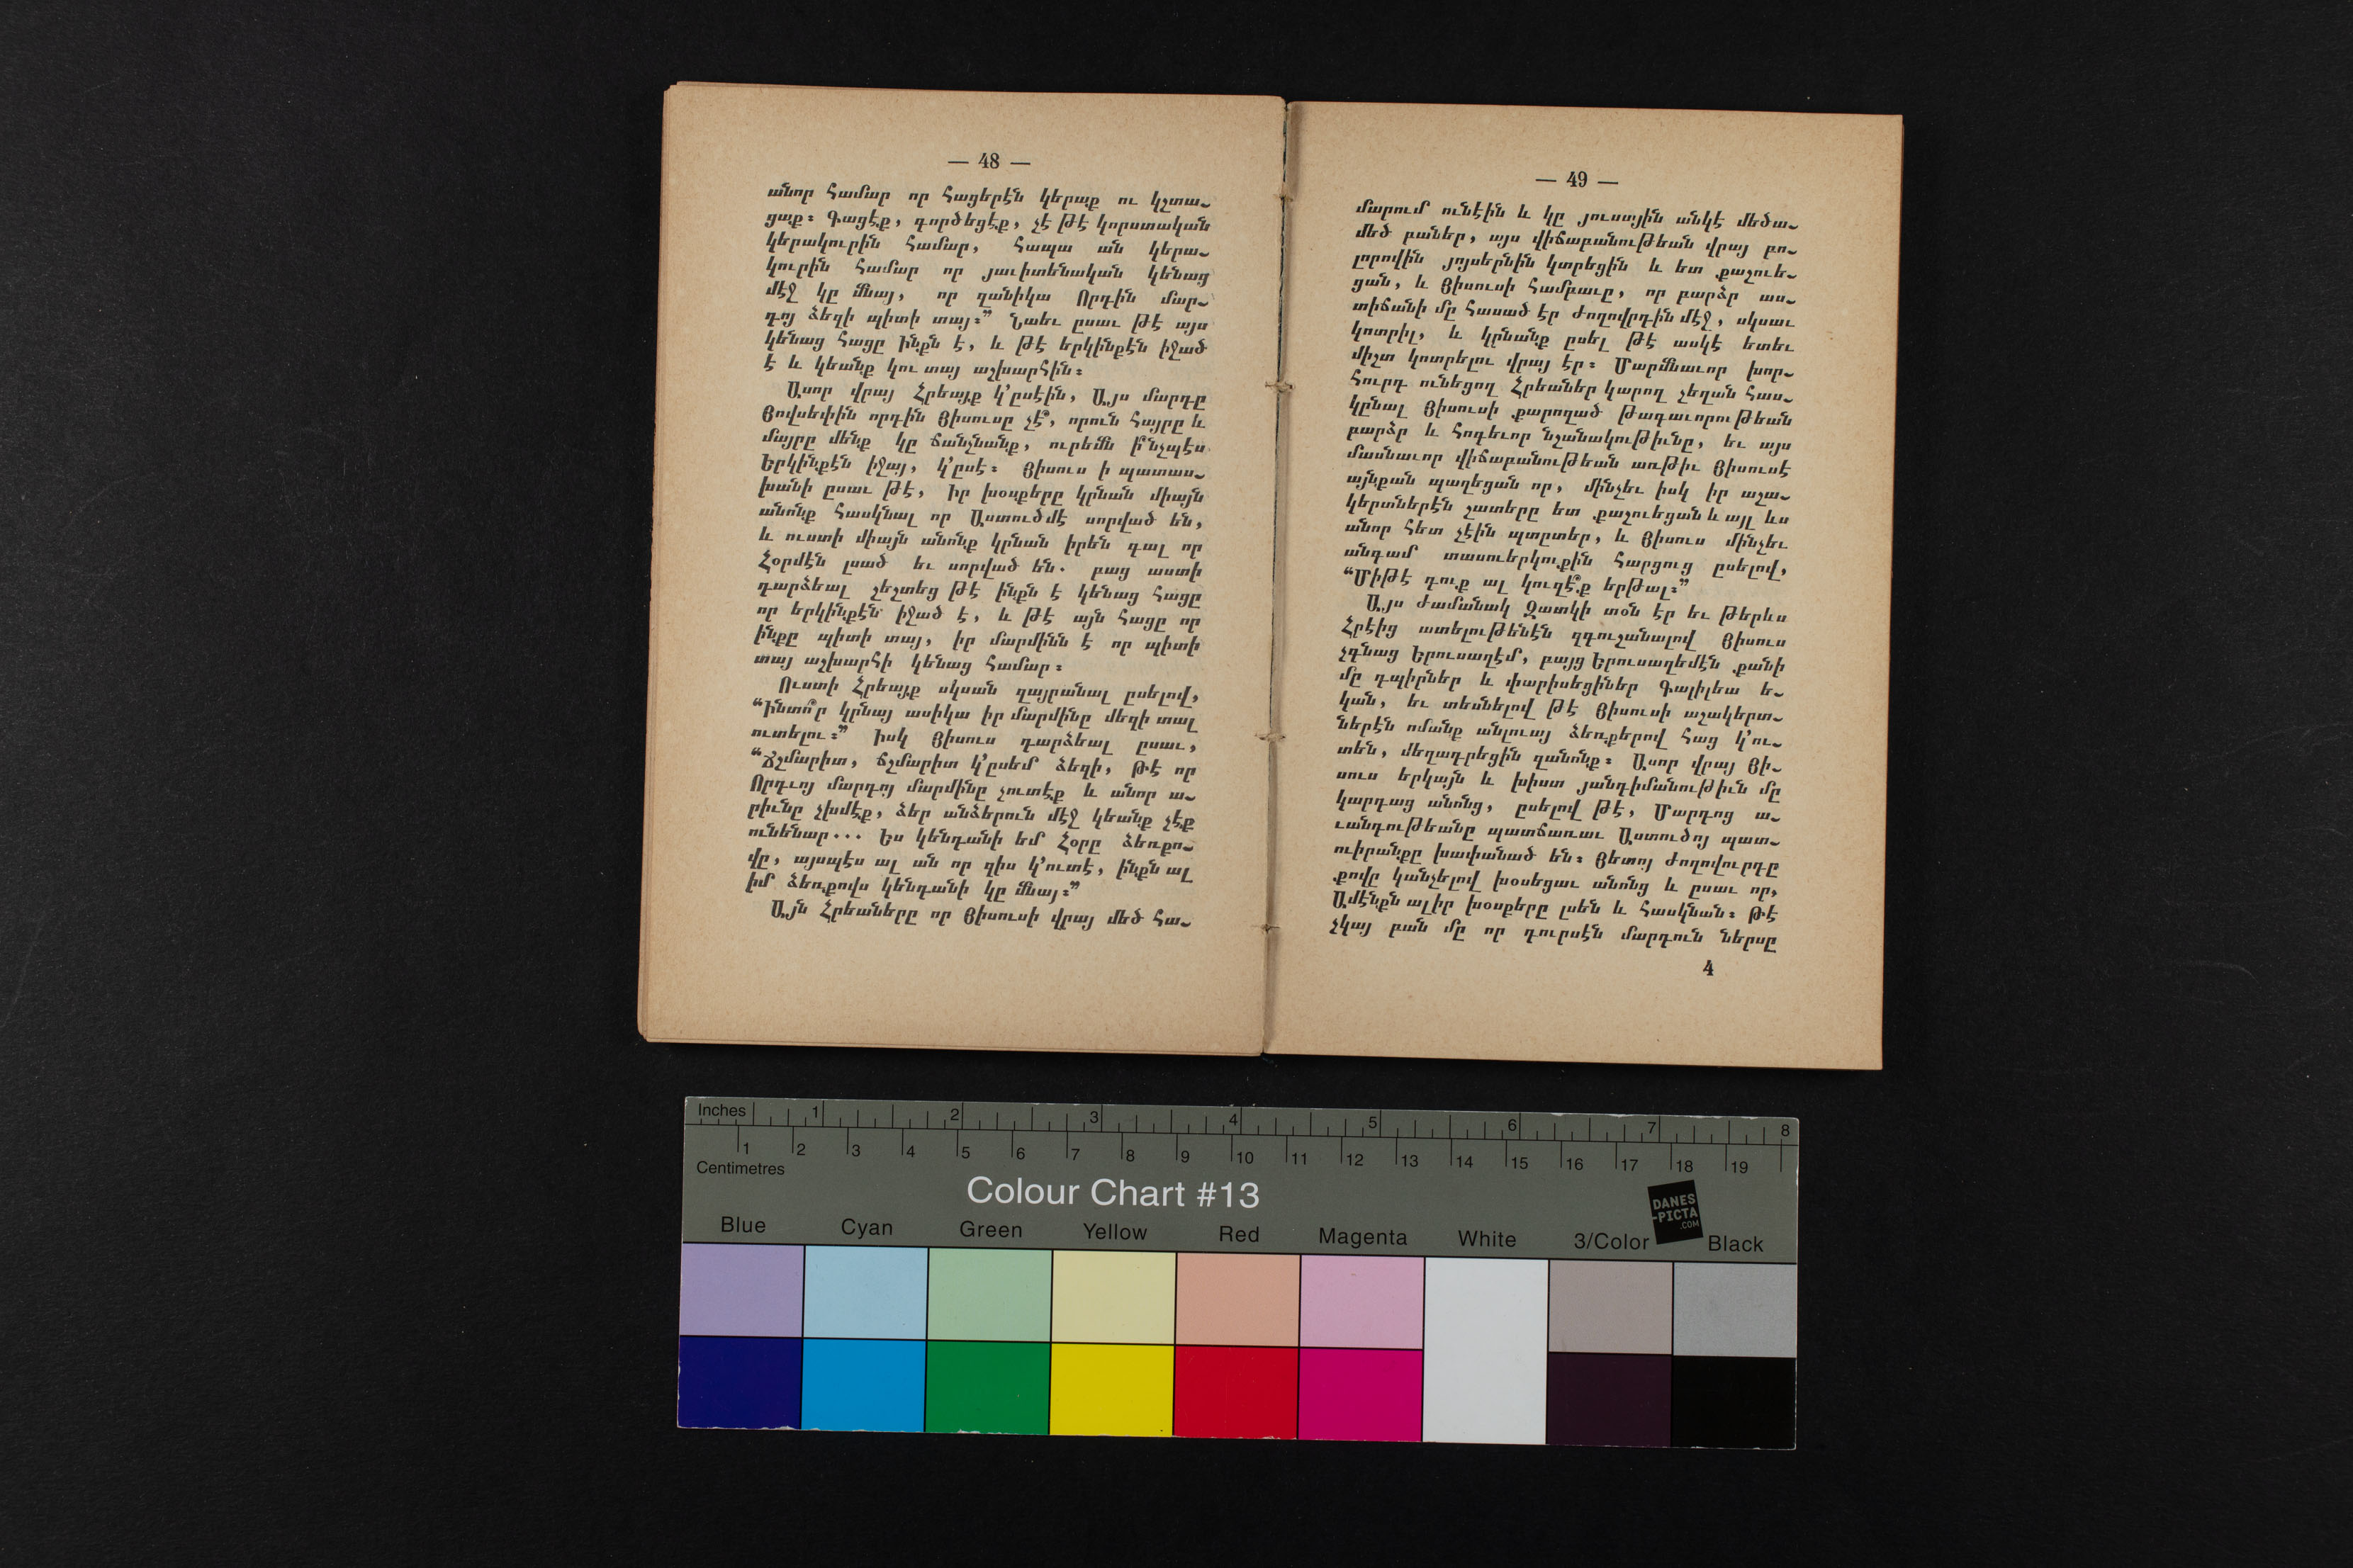 — 48 —
անոր համար որ հացերէն կերաք ու կշտա-
ցաք։ Գացէք, գործեցէք, չէ թէ կորստական
կերակուրին համար, հապա ան կերա-
կուրին համար որ յաւիտենական կենաց
մէջ կը մնայ, որ զանիկա Որդին մար-
դոյ ձեզի պիտի տայ։” Նաեւ ըսաւ թէ այս
կենաց հացը ինքն է, և թէ երկինքէն իջած
է և կեանք կու տայ աշխարհին։
Ասոր վրայ Հրեայք կ՚ըսէին, Այս մարդը
Յովսեփին որդին Յիսուսը չէ՞, որուն հայրը և
մայրը մենք կը ճանչնանք, ուրեմն ի՞նչպէս
Երկինքէն իջայ, կ՚ըսէ։ Յիսուս ի պատաս-
խանի ըսաւ թէ, Իր խօսքերը կրնան միայն
անոնք հասկնալ որ Աստուծմէ սորված են,
և ուստի միայն անոնք կրնան իրեն գալ որ
Հօրմէն լսած եւ սորված են. բաց աստի
դարձեալ չեշտեց թէ ինքն է կենաց հացը
որ երկինքէն իջած է, և թէ այն հացը որ
ինքը պիտի տայ, իր մարմինն է որ պիտի
տայ աշխարհի կենաց համար։
Ուստի Հրեայք սկսան ղայրանալ ըսելով,
“Ինտո՞ր կրնայ ասիկա իր մարմինը մեզի տալ
ուտելու։” Իսկ Յիսուս դարձեալ ըսաւ,
“Ճշմարիտ, ճշմարիտ կ՚ըսեմ ձեզի, թէ որ
Որդւոյ մարդոյ մարմինը չուտէք և անոր ա-
րիւնը չխմէք, ձեր անձերուն մէջ կեանք չէք
ունենար... Ես կենդանի եմ Հօրը ձեռքո-
վը, այսպէս ալ ան որ զիս կ՚ուտէ, ինքն ալ
իմ ձեռքովս կենդանի կը մնայ։”
Այն Հրեաները որ Յիսուսի վրայ մեծ հա-
— 49 —
մարում ունէին և կը յուսային անկէ մեծա-
մեծ բաներ, այս վիճաբանութեան վրայ բո-
լորովին յոյսերնին կտրեցին և ետ քաշուե-
ցան, և Յիսուսի համբաւը, որ բարձր աս-
տիճանի մը հասած էր ժողովրդին մէջ, սկսաւ
կոտրիլ, և կրնանք ըսել թէ ասկէ ետեւ
միշտ կոտրելու վրայ էր։ Մարմնաւոր խոր-
հուրդ ունեցող Հրեաներ կարող չեղան հաս-
կընալ Յիսուսի քարոզած թագաւորութեան
բարձր և հոգեւոր նշանակութիւնը, եւ այս
մասնաւոր վիճաբանութեան առթիւ Յիսուսէ
այնքան պաղեցան որ, մինչեւ իսկ իր աշա-
կերտներէն շատերը ետ քաշուեցան և այլ ևս
անոր հետ չէին պտըտեր, և Յիսուս մինչեւ
անգամ տասուերկուքին հարցուց ըսելով,
“Միթէ դուք ալ կուզէ՞ք երթալ։”
Այս ժամանակ Զատկի տօն էր եւ թերևս
Հրէից ատելութենէն զգուշանալով Յիսուս
չգնաց Երուսաղէմ, բայց Երուսաղեմէն քանի
մը դպիրներ և փարիսեցիներ Գալիլեա ե-
կան, եւ տեսնելով թէ Յիսուսի աշակերտ-
ներէն ոմանք անլուայ ձեռքերով հաց կ՚ու-
տեն, մեղադրեցին զանոնք։ Ասոր վրայ Յի-
սուս երկայն և խիստ յանդիմանութիւն մը
կարդաց անոնց, ըսելով թէ, Մարդոց ա-
ւանդութեանը պատճառաւ Աստուծոյ պատ-
ուիրանքը խափանած են։ Յետոյ ժողովուրդը
քովը կանչելով խօսեցաւ անոնց և ըսաւ որ,
Ամէնքն ալ իր խօսքերը լսեն և հասկնան։ Թէ
չկայ բան մը որ դուրսէն մարդուն ներսը
4
Inches 1 2 3 4 5 6 7 8
1 2 3 4 5 6 7 8 9 10 11 12 13 14 15 16 17 18 19
Centimetres
Colour Chart #13
DANES
-PICTA
.COM
Blue Cyan Green Yellow Red Magenta White 3/Color Black